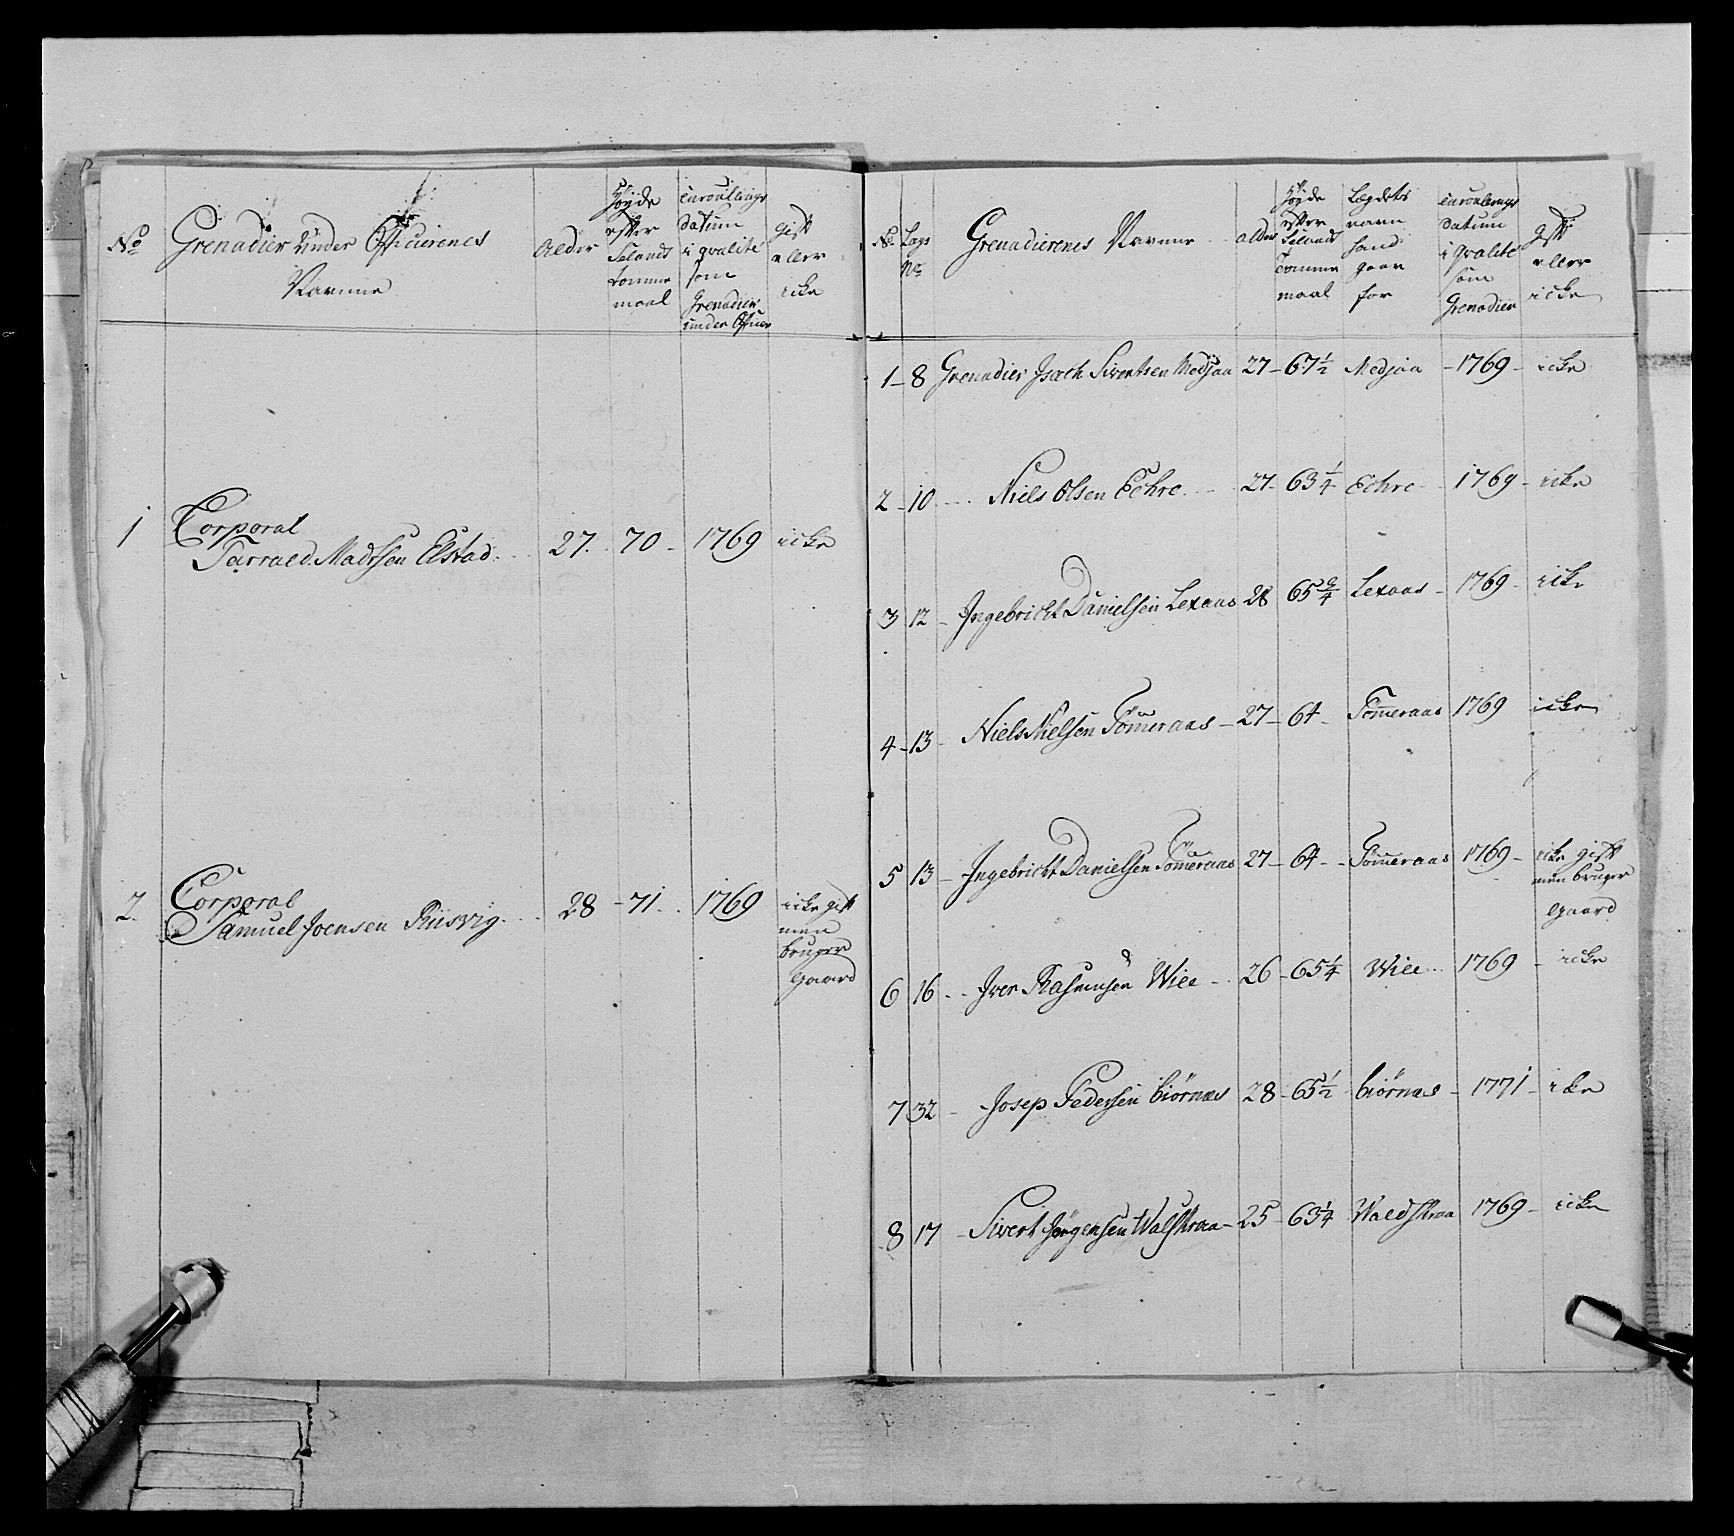 No
Grenadier Under Officierenes
Navnne
Alder
Höyde
efter
Selands
tomme
maal
enroulerings
datum
i qvalite
som
Grenadier
under Officier
gift
eller
icke
1
Corporal
Tarrald Madtsen Elstad
27. 70 1769 icke
2.
Corporal
Samuel Joensen Riisvig
28 71 1769 icke gift
men
bruger
gaard
No.
Lægs
No
Grenadierenes Navnne
alder
Höyde
efter
Selands
tomme
maal
Lægdets
navn
hand
gaar
for
enroulerings
datum
i qvalite
som
Grenadier
gift
eller
icke
1 8 Grenadier Isach Sivertsen Medjaa 27 67 1/2 Medjaa 1769 icke
2 10 Niels Olsen Echre 27 63 1/4 Echre 1769 icke
3 12 Ingebricht Danielsen Lexaas 28 65 2/4 Lexaas 1769 icke
4 13 Niels Nielsen Tömeraas 27 64 Tömeraas 1769 icke
5 13 Ingebricht Danielsen Tömeraas 27 64 Tömeraas 1769 icke gift
men bruger
gaard
6 16 Iver Rasmusen Wiee 26 65 1/4 Wiee 1769 icke
7 32 Josep Pedersen biörnæs 28 65 1/2 biörnæs 1771 icke
8 17 Sivert Jörgensen Walskraa 25 63 1/4 Waldskraa 1769 icke